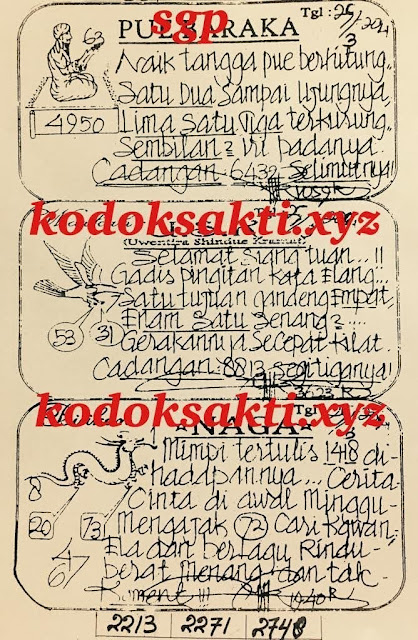 sgp
PULE RAKA
Tgl : 25/3
63
Naik tangga pue berhitung..
Satu Dua Sampai Ujungnya,
4950
Lima Satu Tiga terkurung..
Sembilan 2 iri padanya.
Cadangan 6432 Selimutnya!
kodoksakti.xyz
(Uwentira Shindue Kramat)
Selamat Siang tuan...!!
Gadis pingitan kata Elang!..
Satu tujuan gandeng Empat.
53 31
Enam Satu Senang 2....
Gerakannya Secepat Kilat.
Cadangan 8813 segitiganya!
kodoksakti.xyz
"NAGA"
Tgl
Mimpi tertulis 1418 di-
hadapannya... Cerita
8
Cinta di awal Minggu
20 73
Mengajak 72 Cari Kawan-
Ela dan berlagu Rindu-
4
67
berat Menang dan tak-
!!! 1940 R
2213 2271 2748